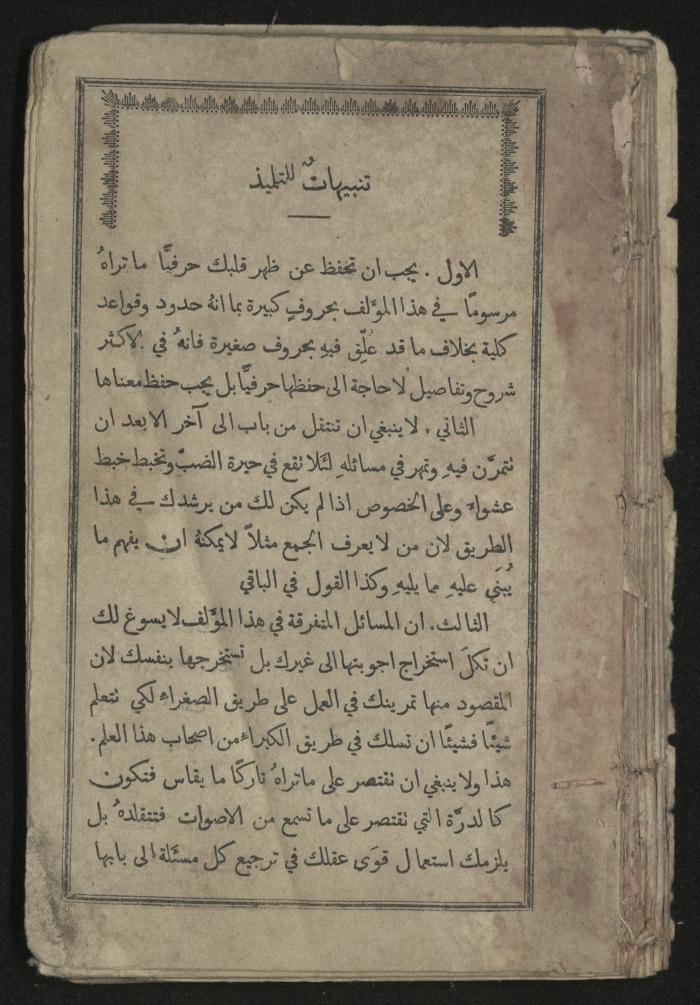 تنبيهاتٌ للتلميذ
الاول . يجب ان تحفظ عن ظهر قلبك حرفيًّا ما تراهُ
مرسومًا في هذا المؤَلف بحروفٍ كبيرة بما انهُ حدود وقواعد
كلية بخلاف ما قد عُلِّق فيهِ بحروف صغيرة فانهُ في الاكثر
شروح وتفاصيل لا حاجة الى حفظها حرفيًّا بل يجب حفظ معناها
الثاني . لا ينبغي ان تنتقل من باب الى آخر الا بعد ان
تتمرَّن فيهِ وتمهر في مسائلهِ لئَلا تقع في حيرة الضبّ وتخبط خبط
عشواءَ وعلى الخصوص اذا لم يكن لك من يرشدك في هذا
الطريق لان من لا يعرف الجمع مثلاً لا يمكنهُ ان يفهم ما
يُبنَى عليهِ مما يليهِ وكذا القول في الباقي
الثالث . ان المسائل المتفرقة في هذا المؤَلف لا يسوغ لك
ان تكلَ استخراج اجوبتها الى غيرك بل تستخرجها بنفسك لان
المقصود منها تمرينك في العمل على طريق الصغراءِ لكي تتعلم
شيئًا فشيئًا ان تسلك في طريق الكبراءِ من اصحاب هذا العلم .
هذا ولا ينبغي ان تقتصر على ما تراهُ تاركًا ما يقاس فتكون
كالدرَّة التي تقتصر على ما تسمع من الاصوات فتتقلدهُ بل
يلزمك استعمال قوَى عقلك في ترجيع كل مسئلة الى بابها